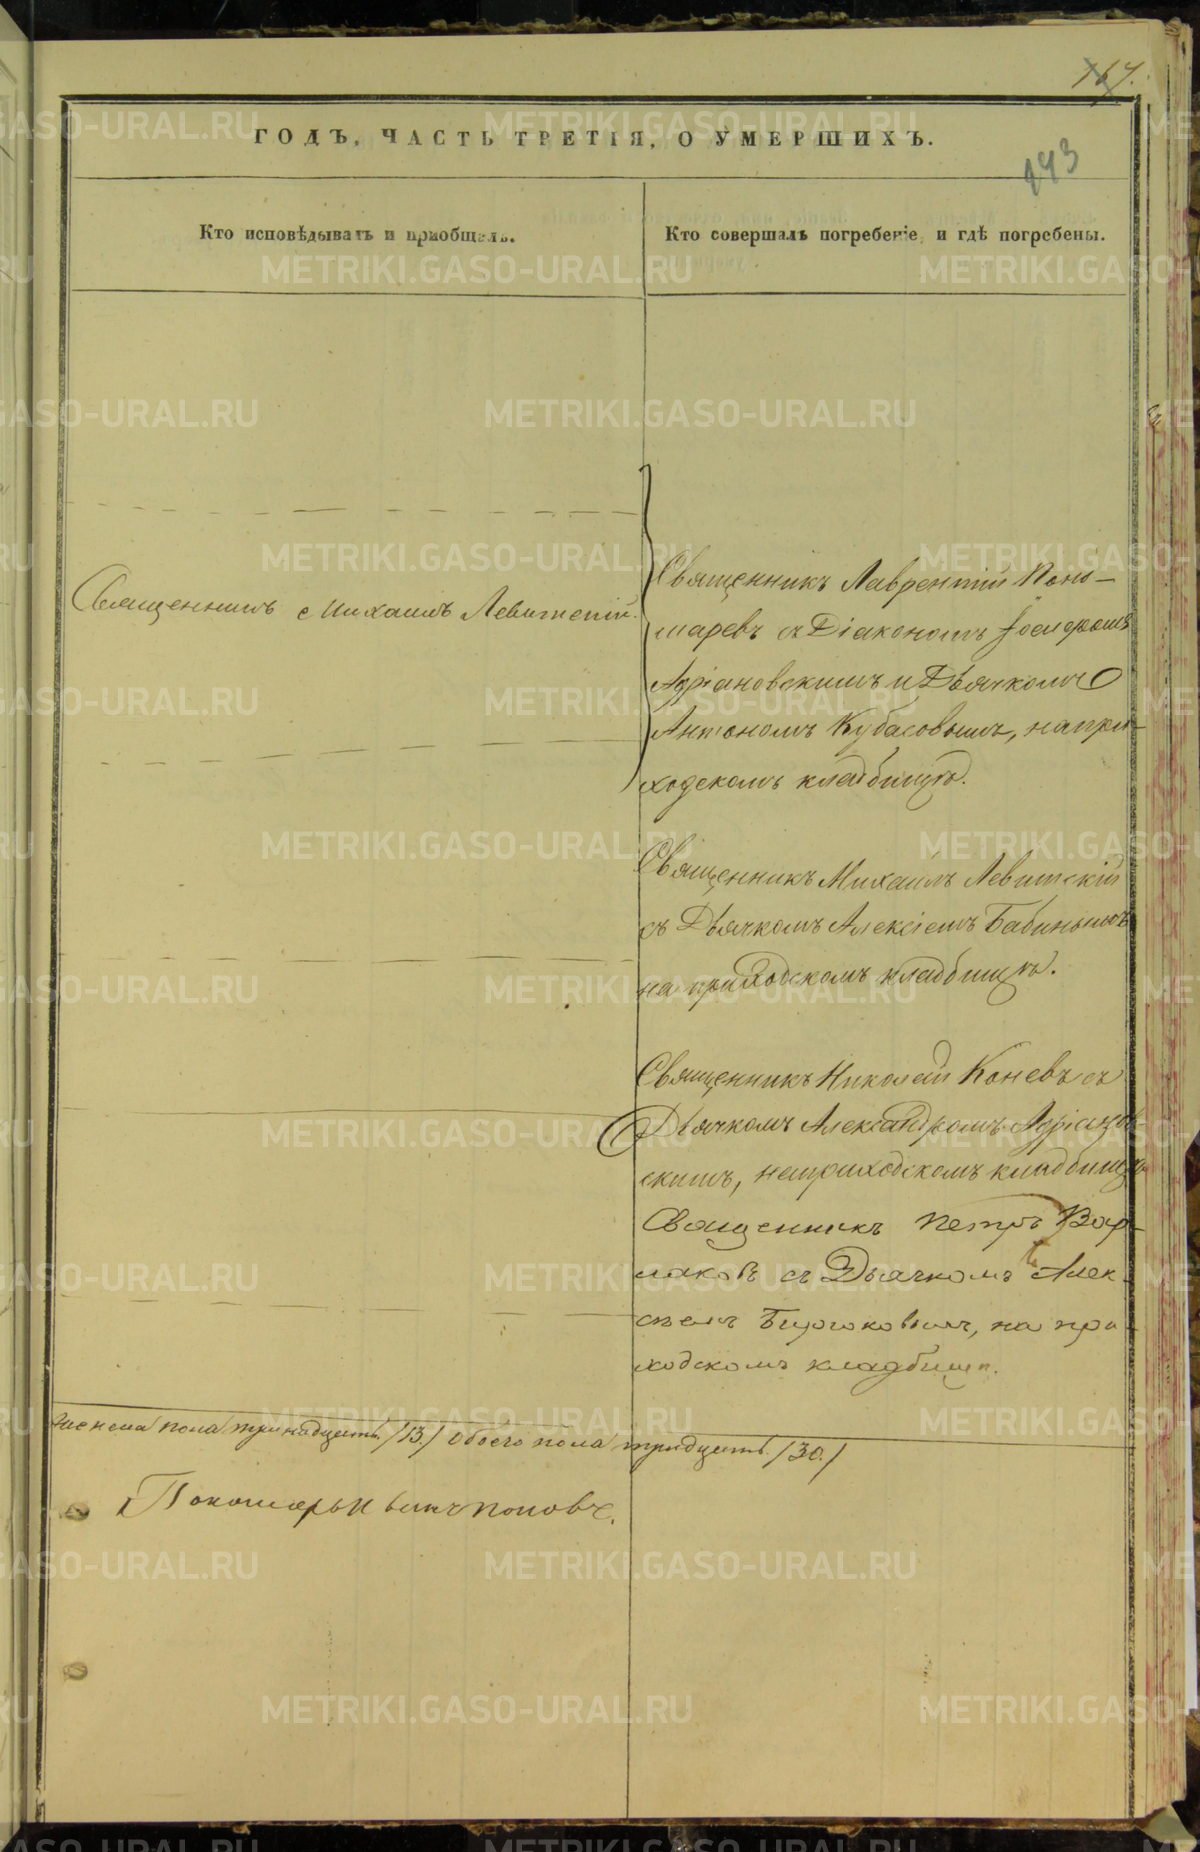 167.
ГОДЪ, ЧАСТЬ ТРЕТІЯ, О УМЕРШИХЪ.
143
Кто исповѣдывалъ и пріобщалъ.
Кто совершалъ погребеніе и гдѣ погребены.
Священникъ Михаилъ Левитскій.
Священникъ Лаврентій Поно-
маревъ съ Діакономъ
Адріановскимъ и Дьячкомъ
Антономъ Кубасовымъ, на при-
ходскомъ кладбищѣ.
Священникъ Михаилъ Левитскій
съ Дьячкомъ Алексіемъ Бабинымъ
на приходскомъ кладбищѣ.
Священникъ Николай Коневъ съ
Дьячкомъ Александромъ Адріанов-
скимъ, на приходскомъ кладбищѣ
Священникъ Петръ Вар-
лаковъ съ Дьячкомъ Алек-
сѣемъ Бирюковымъ, на при-
ходскомъ кладбищѣ.
женска пола тринадцать /13./ Обоего пола тридцать. /30./
Поповъ.
METRIKI.GASO-URAL.RU